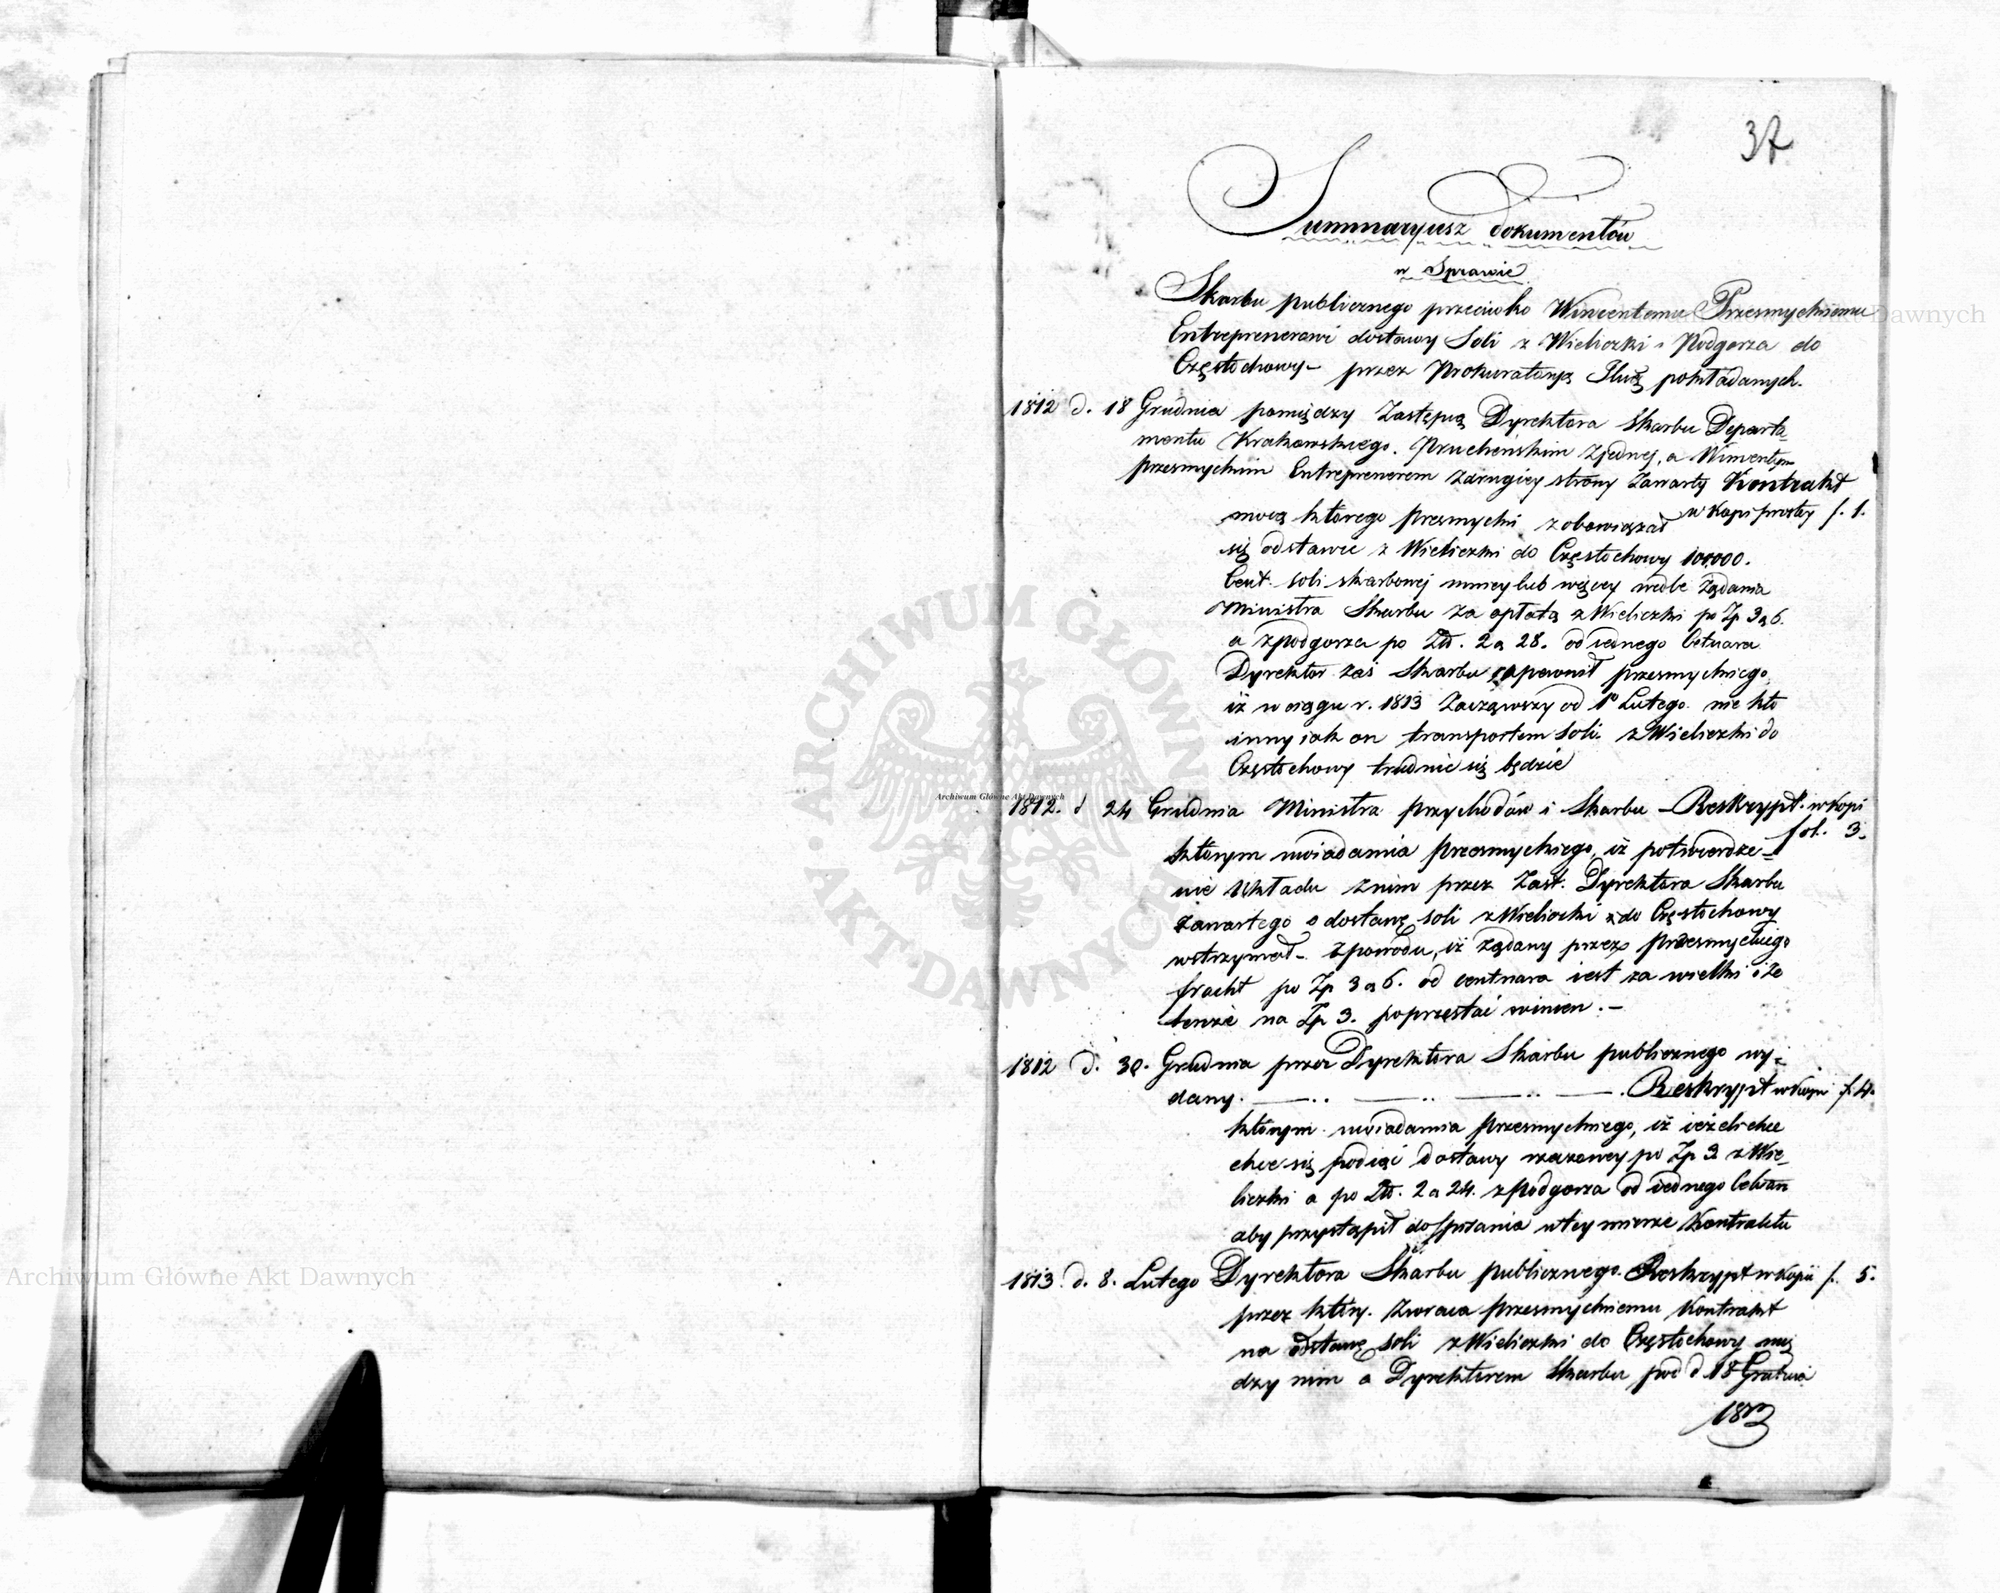 37
Summaryusz dokumentów
w Sprawie
Skarbu publicznego przeciwko Wincentemu Przesmyckiemu
Entreprenerowi dostawy Soli z Wieliczki i Podgorza do
Częstochowy – przez Prokuratoryą
1812 d. 18 Grudnia pomiędzy Zastępcą Dyrektora Skarbu Departa-
mentu Krakowskiego. zjednej, a Wincentym
przesmyckim Entreprenerem zdrugiey strony zawarty Kontrakt
w Kopi prostey f. 1.
mocą którego przesmycki zobowiązał
się odstawić z Wieliczki do Częstochowy 100000.
Cent. soli skarbowej mniey lub więcey wedle żądania
Ministra Skarbu za opłatą z Wieliczki po Zp 3 g 6.
a zpodgorza po Zł. 2 g 28. od iednego Cetnara
Dyrektor zaś Skarbu zapewnił przesmyckiego
iż w ciągu r. 1813 Zacząwszy od 1º Lutego nie kto
inny iak on transportem soli z Wieliczki do
Częstochowy trudnić się będzie
1812. d 24 Grudnia Ministra przychodów i Skarbu – Reskrypt w Kopi
fol. 3.
którym uwiadamia przesmyckiego, iż potwierdze-
nie Układu znim przez Zast. Dyrektora Skarbu
zawartego o dostawę soli z Wieliczki do Częstochowy
wstrzymał – zpowodu, iż żądany przez przesmyckiego
fracht po Zp 3 g 6. od centnara iest za wielki i że
tenże na Zp 3. poprzestać winien. –
1812 d. 30. Grudnia przez Dyrektora Skarbu publicznego wy-
dany. Reskrypt w Kopi f. 4.
którym uwiadamia przesmyckiego, iż ieżeli chce
chce się podiąć dostawy rzeczoney po Zp 3 z Wie-
liczki a po Zł. 2 g 24. zpodgorza od iednego Cetnara
aby przystąpił do spisania w tey mierze Kontraktu
1813 d. 8. Lutego Dyrektora Skarbu publicznego. Reskrypt w Kopii f. 5.
przez który. zwraca przesmyckiemu Kontrakt
na dostawę soli z Wieliczki do Częstochowy mię
dzy nim a Dyrektorem Skarbu pod d 18 Grudnia
Archiwum Główne Akt Dawnych
ARCHIWUM GŁÓWNE AKT DAWNYCH
Archiwum Główne Akt Dawnych
Archiwum Główne Akt Dawnych